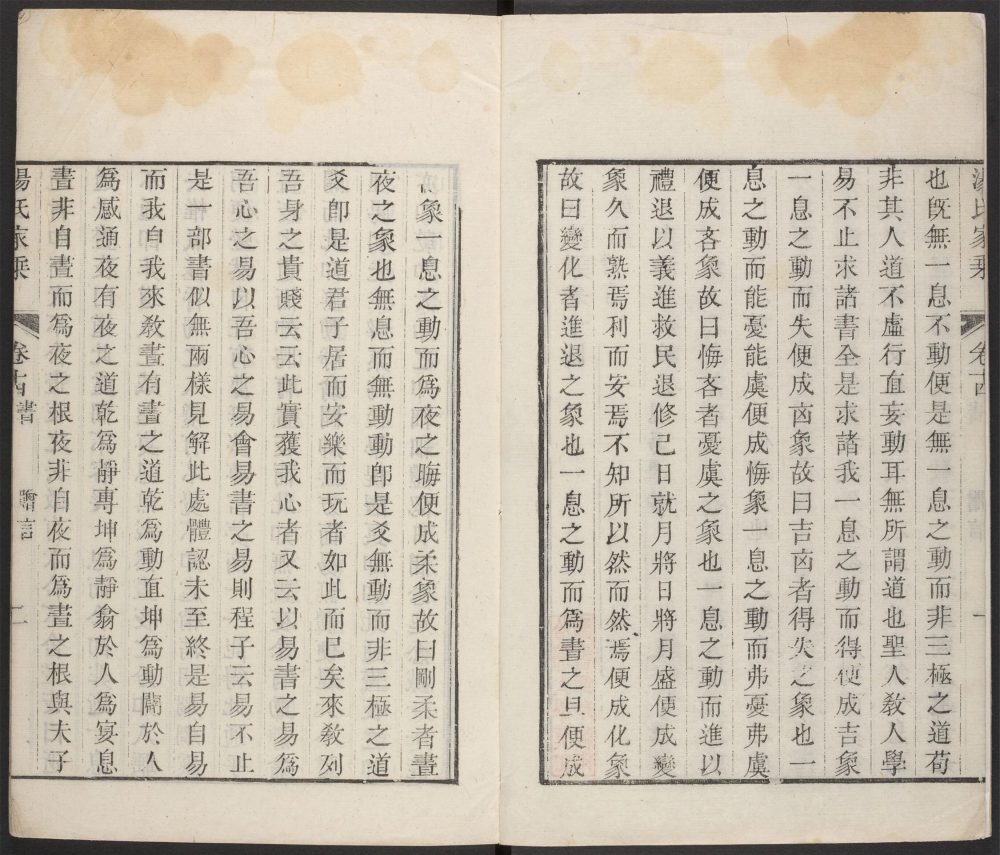 氏家乘 卷十四 一
也旣無一息不動便是無一息之動而非三極之道苟
非其人道不虛行直妄動耳無所謂道也聖人敎人學
易不止求諸書全是求諸我一息之動而得便成吉象
一息之動而失便成凶象故曰吉凶者得失之象也一
息之動而能憂能虞便成悔象一息之動而弗憂弗虞
便成吝象故曰悔吝者憂虞之象也一息之動而進以
禮退以義進救民退修己日就月將日將月盛便成變
象久而熟焉利而安焉不知所以然而然焉便成化象
故曰變化者進退之象也一息之動而爲晝之旦便成
象一息之動而爲夜之晦便成柔象故曰剛柔者晝
夜之象也無息而無動動卽是爻無動而非三極之道
爻卽是道君子居而安樂而玩者如此而已矣來敎列
吾身之貴賤云云此實獲我心者又云以易書之易爲
吾心之易以吾心之易會易書之易則程子云易不止
是一部書似無兩樣見解此處體認未至終是易自易
而我自我來敎晝有晝之道乾爲動直坤爲動闢於人
爲感通夜有夜之道乾爲靜專坤爲靜翕於人爲宴息
晝非自晝而爲夜之根夜非自夜而爲晝之根與夫子
湯氏家乘 卷十四 書 贍言 二